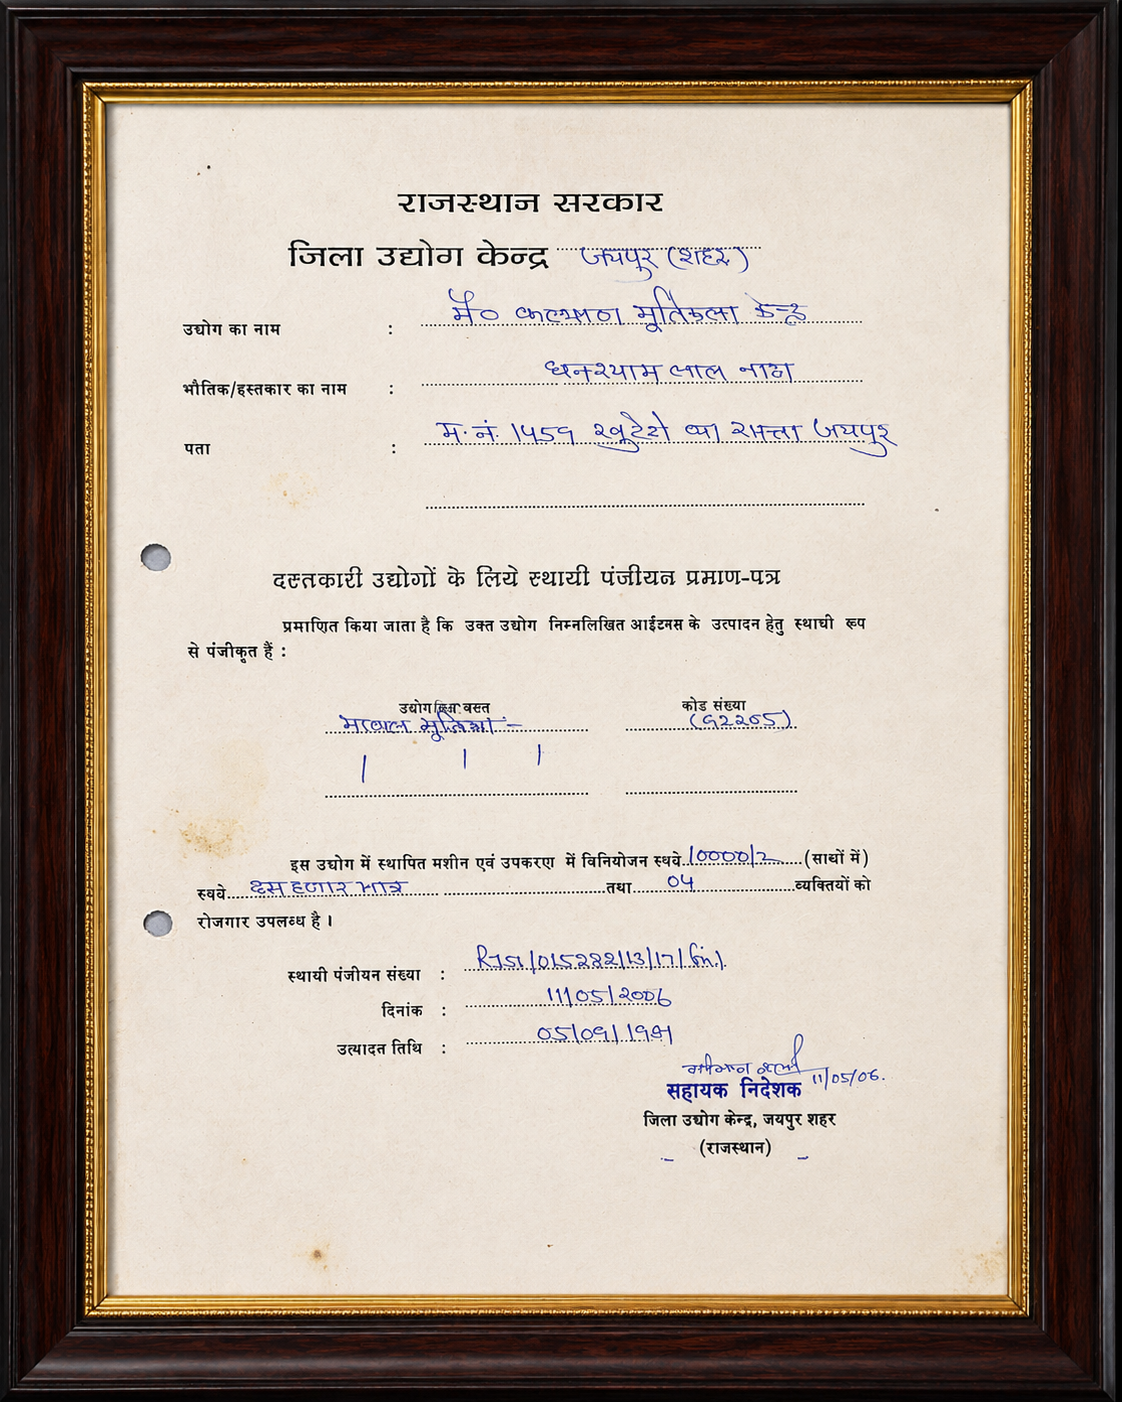 राजस्थान सरकार
जिला उद्योग केन्द्र जयपुर (शहर)
उद्योग का नाम : मै० कल्याण मूर्तिकला केन्द्र
भौतिक/हस्तकार का नाम : घनश्याम लाल
पता : म.नं. 1459 का रास्ता जयपुर
दस्तकारी उद्योगों के लिये स्थायी पंजीयन प्रमाण-पत्र
प्रमाणित किया जाता है कि उक्त उद्योग निम्नलिखित आईटमस के उत्पादन हेतु स्थाची रूप
से पंजीकृत हैं :
उद्योग वस्त कोड संख्या
मूर्तिया :- (92205)
इस उद्योग में स्थापित मशीन एवं उपकरण में विनियोजन रुथवे 10000/2 (साथों में)
रुववे दस हजार मात्र तथा 04 व्यक्तियों को
रोजगार उपलब्ध है ।
स्थायी पंजीयन संख्या :
दिनांक : 11/05/2006
उत्यादत तिथि :
11/05/06.
सहायक निदेशक
जिला उद्योग केन्द्र, जयपुर शहर
(राजस्थान)